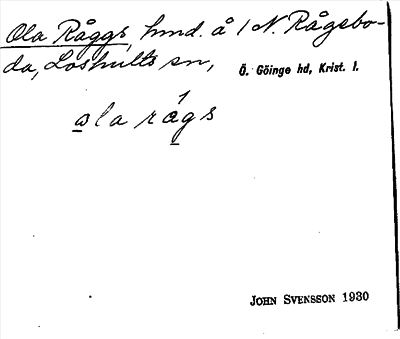 Ola Råggs, hmd. å 1 N. Rågsbo-
da, Loshults sn,
Ö. Göinge hd, Krist. l.
ola rágs
JOHN SVENSSON 1930